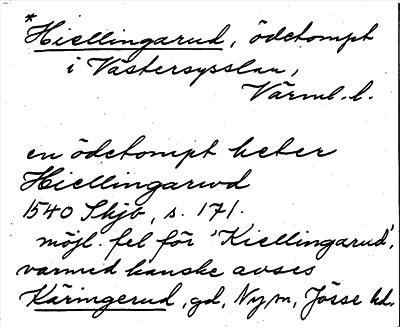 *
Hiellingarud, ödetompt
i Västersysslan,
Värml. l.
en ödetompt heter
Hiellingarwd
1540 Skjb, s. 171.
möjl. fel för 'Kiellingarud',
varmed kanske avses
Käringerud, gd, Ny sn, Jösse hd.